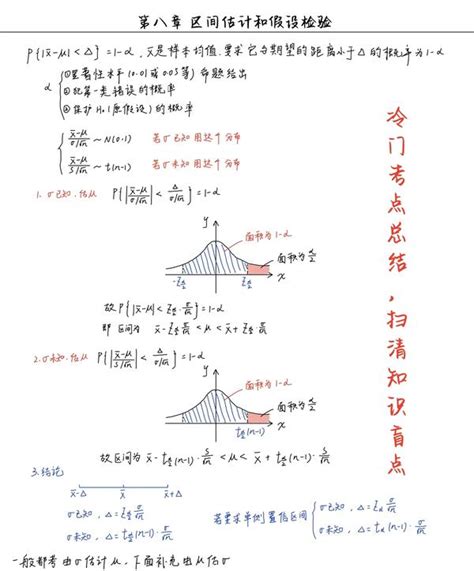 第八章 区间估计和假设检验
P{|x̄-μ|<Δ}=1-α, x̄是样本均值,要求它与期望的距离小于Δ的概率为1-α
α { ①显著性水平(0.01或0.05等)命题给出
②犯第一类错误的概率
③保护H₀(原假设)的概率
{ (x̄-μ)/(σ/√n) ~ N(0,1) 若σ已知用这个分布
(x̄-μ)/(S/√n) ~ t(n-1) 若σ未知用这个分布
1. σ已知,估μ P{|(x̄-μ)/(σ/√n)| < Δ/(σ/√n)}=1-α
y
面积为1-α
面积为α/2
-Z_{α/2} Z_{α/2} x
故P{|x̄-μ|<Z_{α/2}·σ/√n}=1-α
即 区间为 x̄-Z_{α/2} σ/√n < μ < x̄+Z_{α/2} σ/√n
2. σ未知,估μ P{|(x̄-μ)/(S/√n)| < Δ/(σ/√n)}=1-α
y
面积为1-α
面积为α/2
t_{α/2}(n-1) x
故区间为 x̄-t_{α/2}(n-1)·S/√n < μ < x̄+t_{α/2}(n-1)·S/√n
3. 结论
x̄-Δ x̄ x̄+Δ
σ已知, Δ=Z_{α/2} σ/√n
σ未知, Δ=t_{α/2}(n-1) S/√n
若要求单侧置信区间 { σ已知, Δ=Z_α σ/√n
σ未知, Δ=t_α(n-1) S/√n
一般都考由σ估计μ,下面补充由μ估σ
冷门考点总结,扫清知识盲点